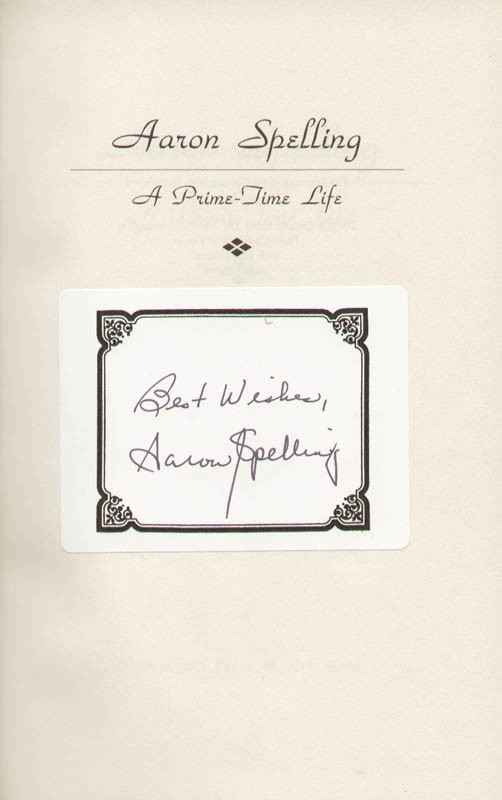 Aaron Spelling
A Prime-Time Life
Best Wishes,
Aaron Spelling